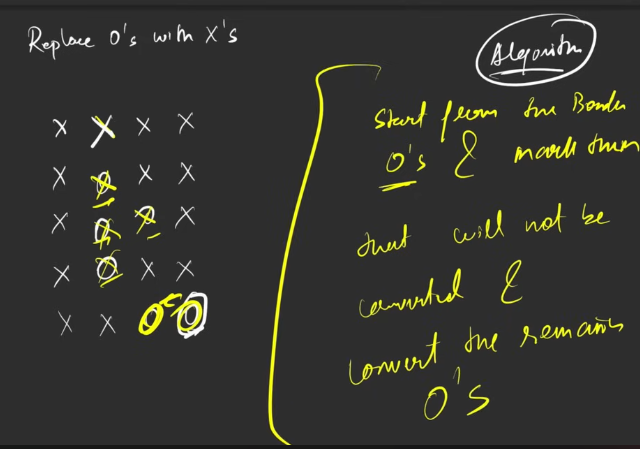 Replace O's with X's
Algorithm
X X X X
X O X X
X O O X
X O X X
X X O O
Start from the Border
O's & mark them
that will not be
converted &
convert the remaining
O's